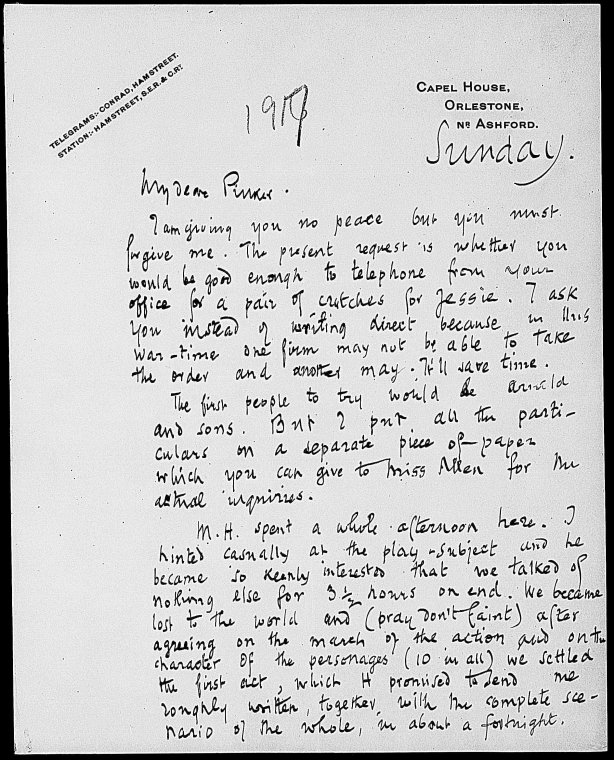 TELEGRAMS:- CONRAD, HAMSTREET.
STATION:- HAMSTREET, S.E.R. & C.RY.
1917
CAPEL HOUSE,
ORLESTONE,
NR ASHFORD.
Sunday.
My dear Pinker.
I am giving you no peace but you must
forgive me. The present request is whether you
would be good enough to telephone from your
office for a pair of crutches for Jessie. I ask
you instead of writing direct because in this
war-time one firm may not be able to take
the order and another may. It'll save time.
The first people to try would be Arnold
and sons. But I put all the parti-
culars on a separate piece of paper
which you can give to Miss Allen for the
actual inquiries.
M.H. spent a whole afternoon here. I
hinted casually at the play-subject and he
became so keenly interested that we talked of
nothing else for 3½ hours on end. We became
lost to the world and (pray don't faint) after
agreeing on the march of the action and on the
character of the personages (10 in all) we settled
the first act, which H promised to send me
roughly written, together with the complete sce-
nario of the whole, in about a fortnight.